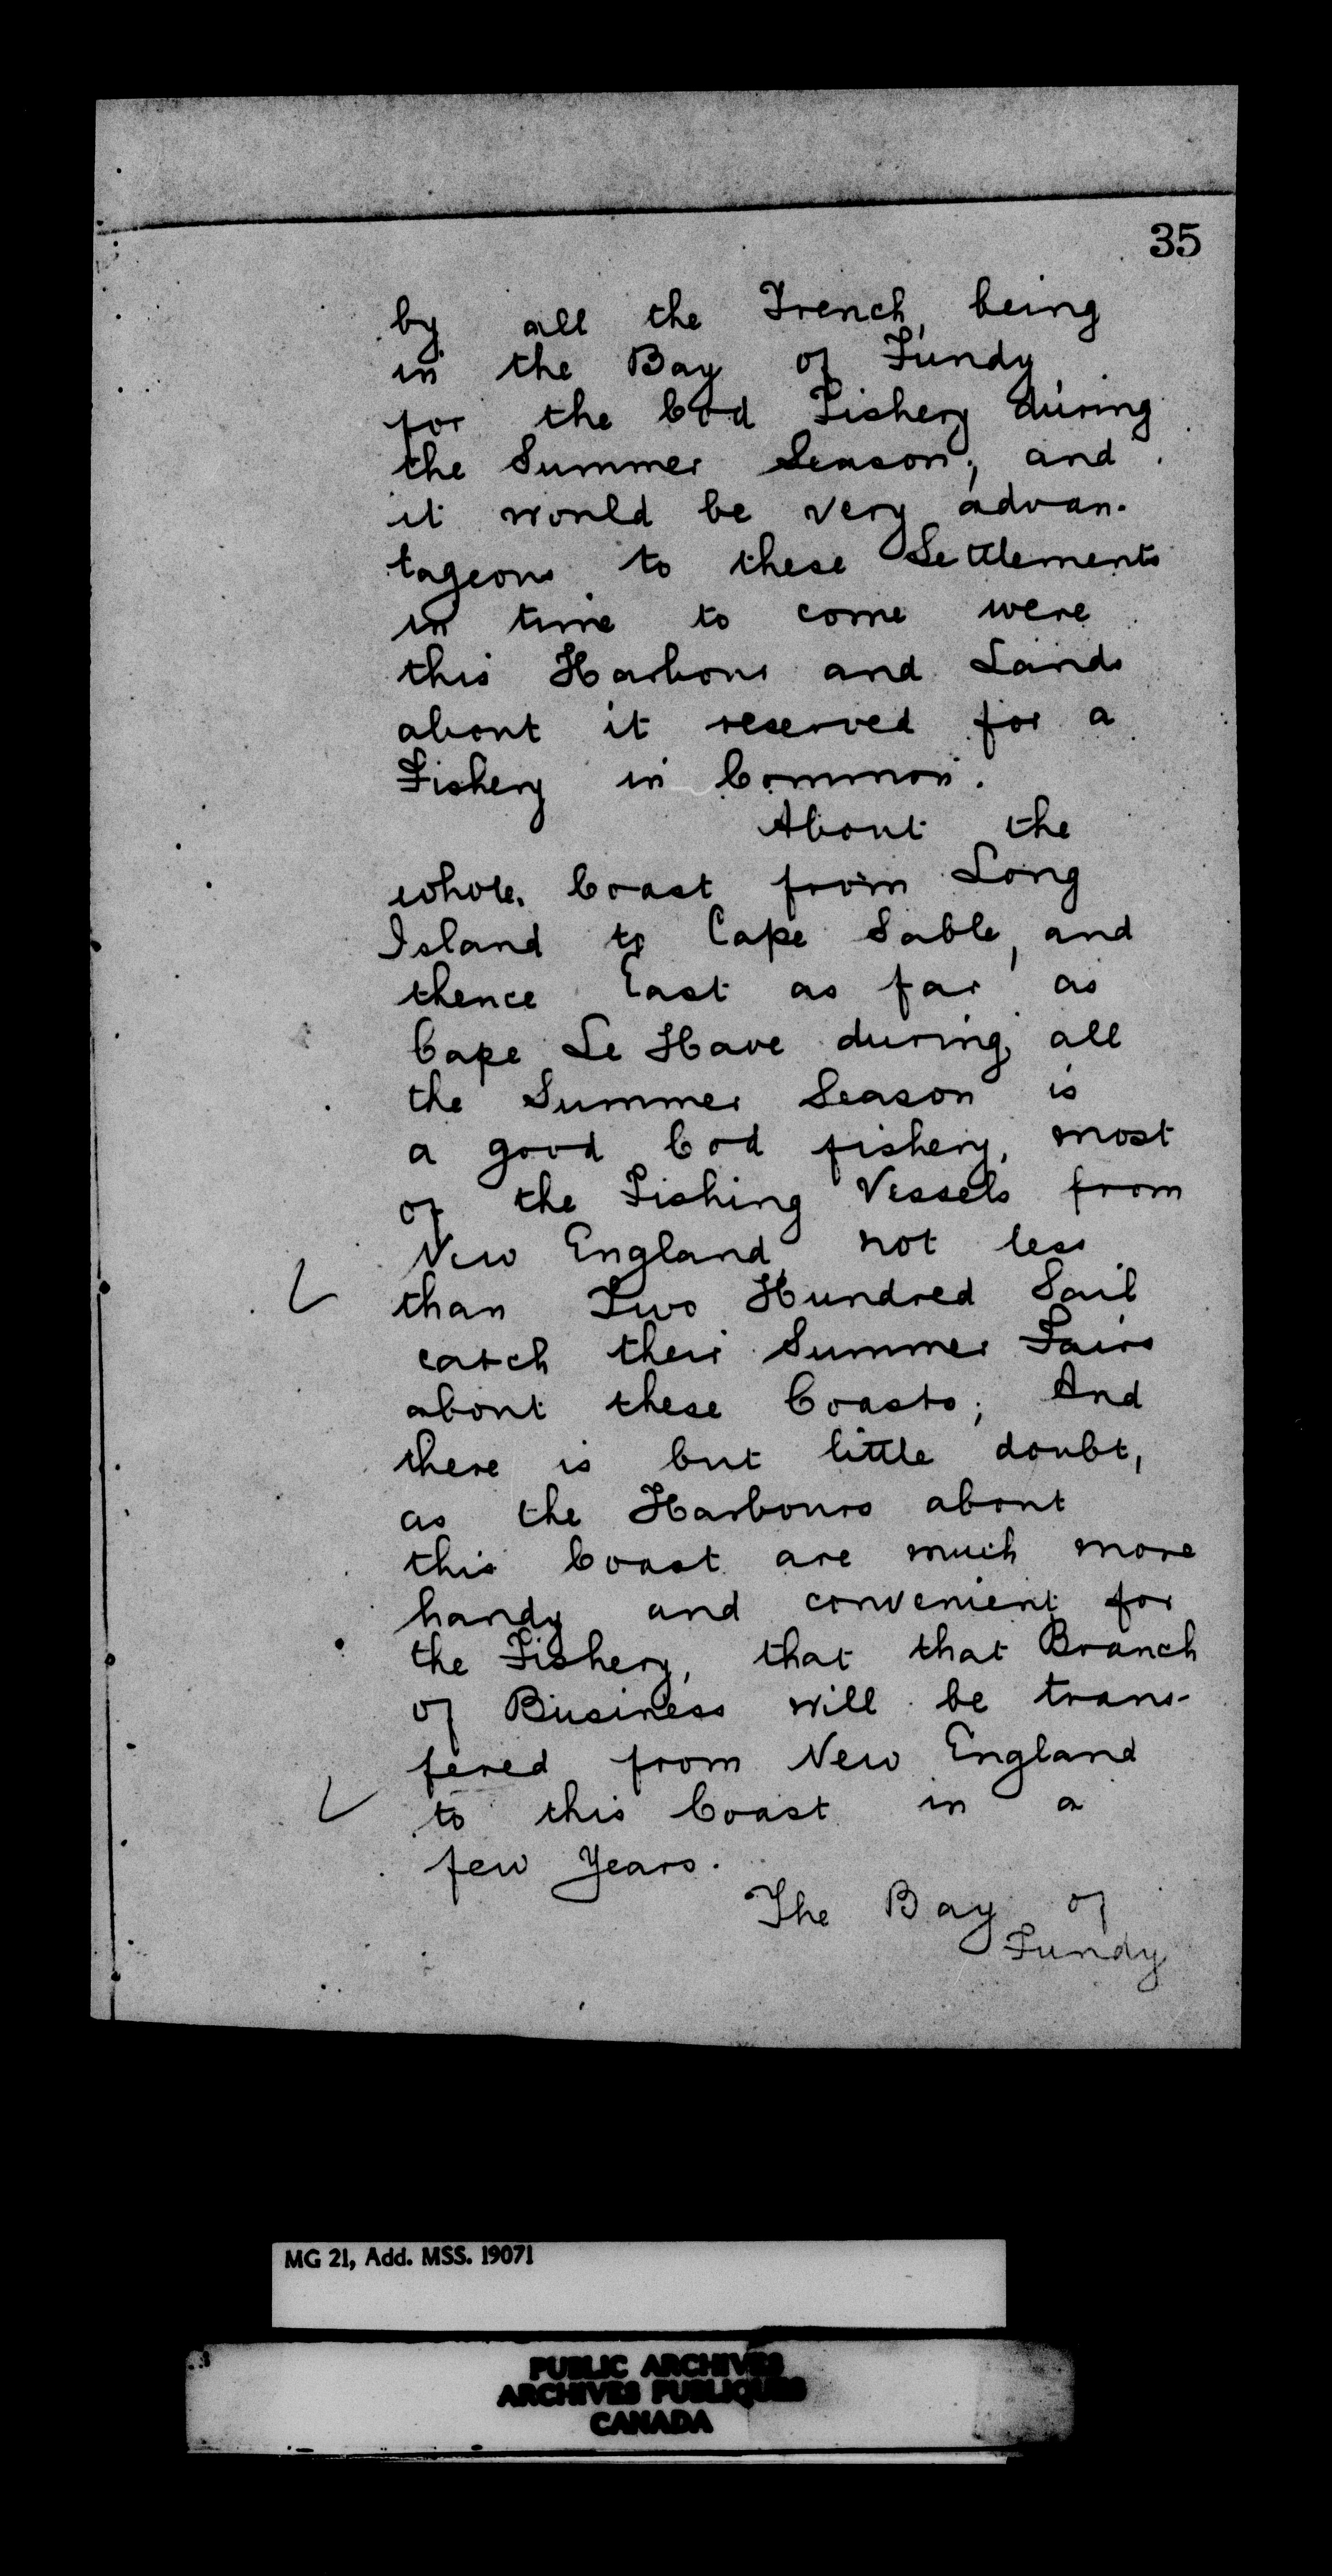 35
by all the French, being
in the Bay of Fundy,
for the Cod Fishery during
the Summer Season; and
it would be very advan-
tageous to these Settlements
in time to come were
this Harbour and Lands
about it reserved for a
Fishery in Common.
About the
whole Coast from Long
Island to Cape Sable, and
thence East as far as
Cape Le Have during all
the Summer Season is
a good Cod fishery, most
of the Fishing Vessels from
New England, not less
than Two Hundred Sail
catch their Summer Fairs
about these Coasts; And
there is but little doubt,
as the Harbours about
this Coast are much more
handy and convenient for
the Fishery, that that Branch
of Business will be trans-
fered from New England
to this Coast in a
few Years.
The Bay of
Fundy
MG 21, Add. MSS. 19071
PUBLIC ARCHIVES
ARCHIVES PUBLIQUES
CANADA